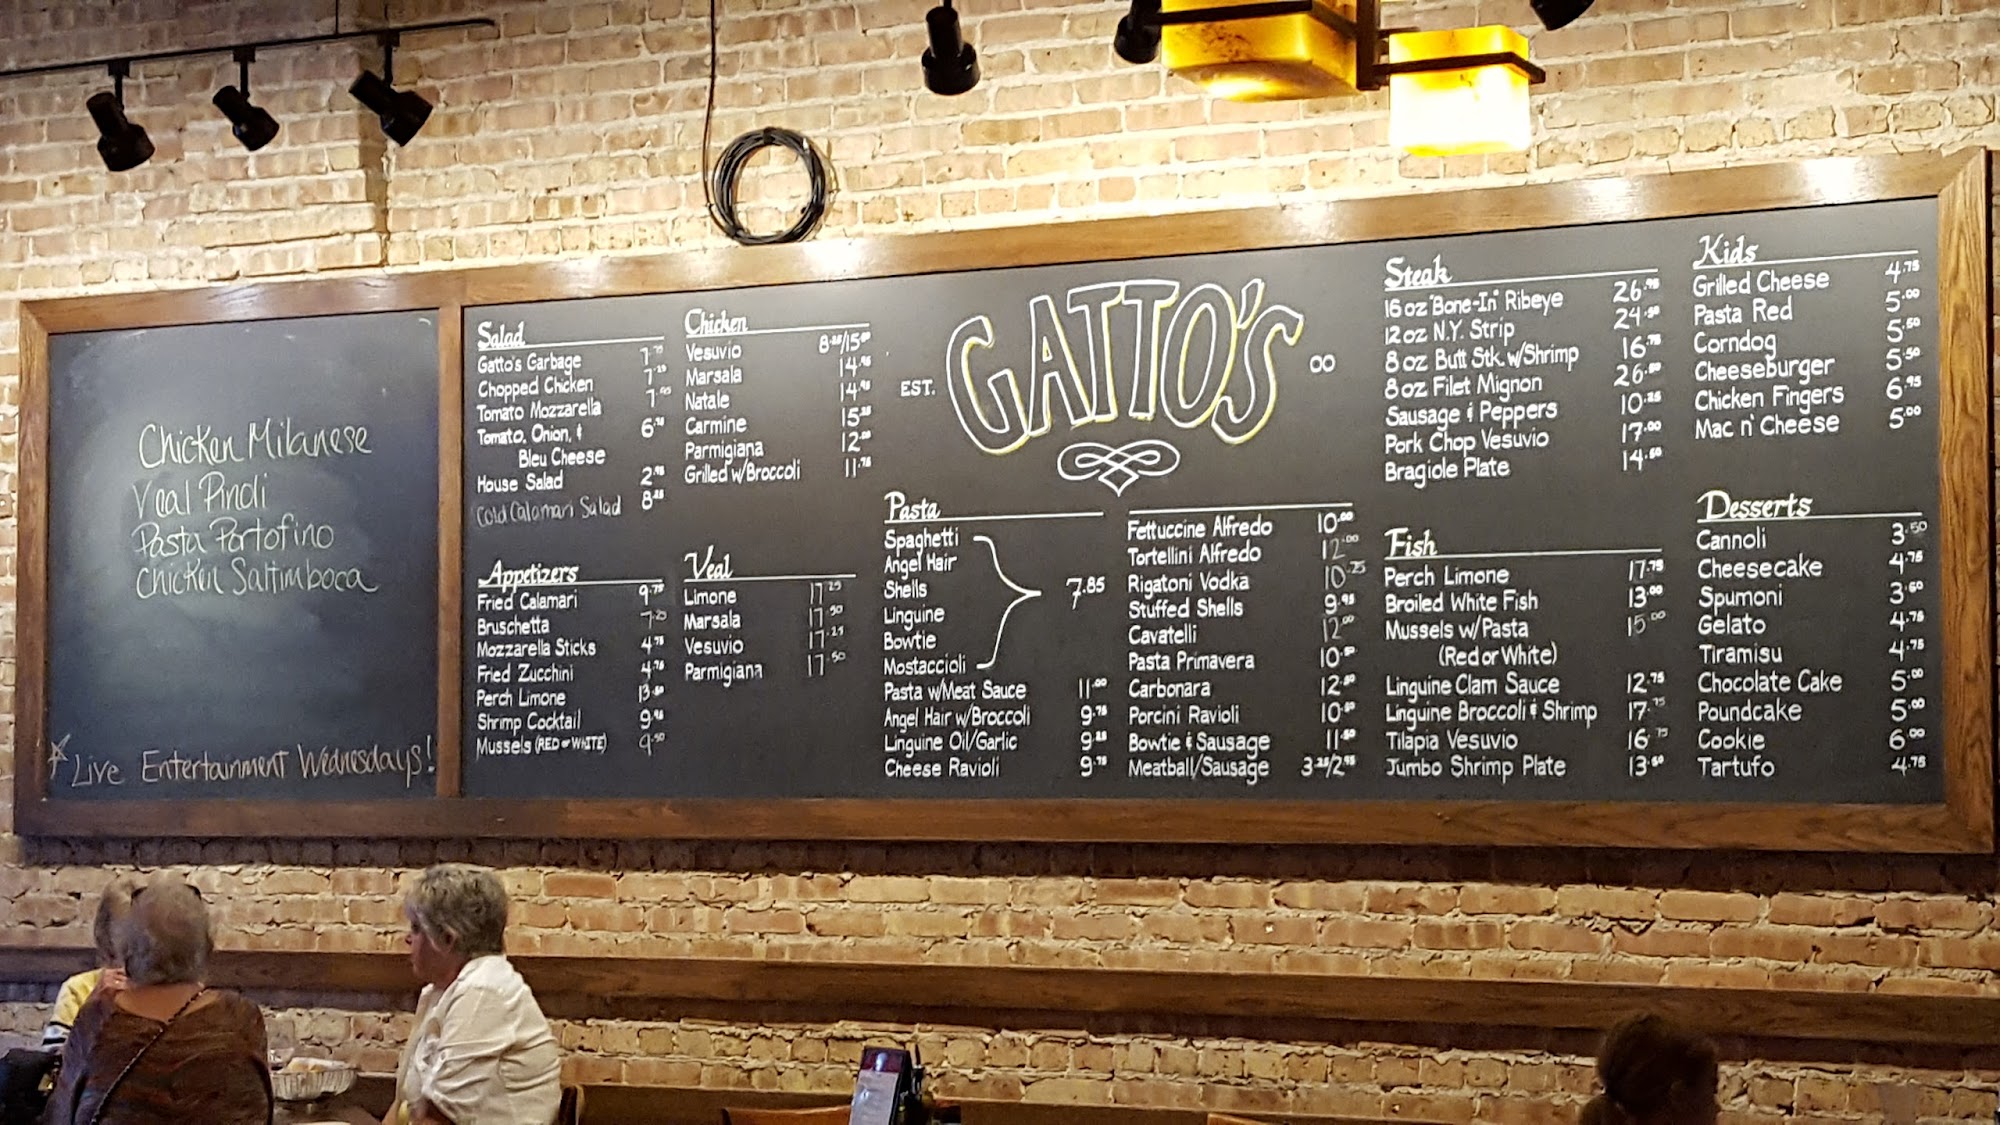 Chicken Milanese
Veal Pinoli
Pasta Portofino
Chicken Saltimboca
Live Entertainment Wednesdays!
Salad
Gatto's Garbage 7.75
Chopped Chicken 7.25
Tomato Mozzarella 7.95
Tomato, Onion, & 6.95
Bleu Cheese
House Salad 2.95
Cold Calamari Salad 8.25
Appetizers
Fried Calamari 9.75
Bruschetta 7.25
Mozzarella Sticks 4.75
Fried Zucchini 4.75
Perch Limone 13.50
Shrimp Cocktail 9.95
Mussels (RED or WHITE) 9.50
Chicken
Vesuvio
Marsala 14.95
Natale 14.95
Carmine 15.25
Parmigiana 12.00
Grilled w/Broccoli 11.75
Veal
Limone 17.25
Marsala 17.50
Vesuvio 17.25
Parmigiana 17.50
EST. GATTO'S 00
Pasta
Spaghetti
Angel Hair
Shells 7.85
Linguine
Bowtie
Mostaccioli
Pasta w/Meat Sauce 11.00
Angel Hair w/Broccoli 9.75
Linguine Oil/Garlic 9.25
Cheese Ravioli 9.75
Fettuccine Alfredo 10.00
Tortellini Alfredo 12.00
Rigatoni Vodka 10.75
Stuffed Shells 9.95
Cavatelli 12.00
Pasta Primavera 10.50
Carbonara 12.50
Porcini Ravioli 10.50
Bowtie & Sausage 11.50
Meatball/Sausage 3.25/2.95
Steak
16 oz "Bone-In" Ribeye 26.95
12 oz N.Y. Strip 24.50
8 oz Butt Stk. w/Shrimp 16.75
8 oz Filet Mignon 26.50
Sausage & Peppers 10.25
Pork Chop Vesuvio 17.00
Bragiole Plate 14.50
Fish
Perch Limone 17.75
Broiled White Fish 13.00
Mussels w/Pasta 15.00
(Red or White)
Linguine Clam Sauce 12.75
Linguine Broccoli & Shrimp 17.75
Tilapia Vesuvio 16.75
Jumbo Shrimp Plate 13.50
Kids
Grilled Cheese 4.75
Pasta Red 5.00
Corndog 5.50
Cheeseburger 5.50
Chicken Fingers 6.95
Mac n' Cheese 5.00
Desserts
Cannoli 3.50
Cheesecake 4.75
Spumoni 3.50
Gelato 4.75
Tiramisu 4.75
Chocolate Cake 5.00
Poundcake 5.00
Cookie 6.00
Tartufo 4.75